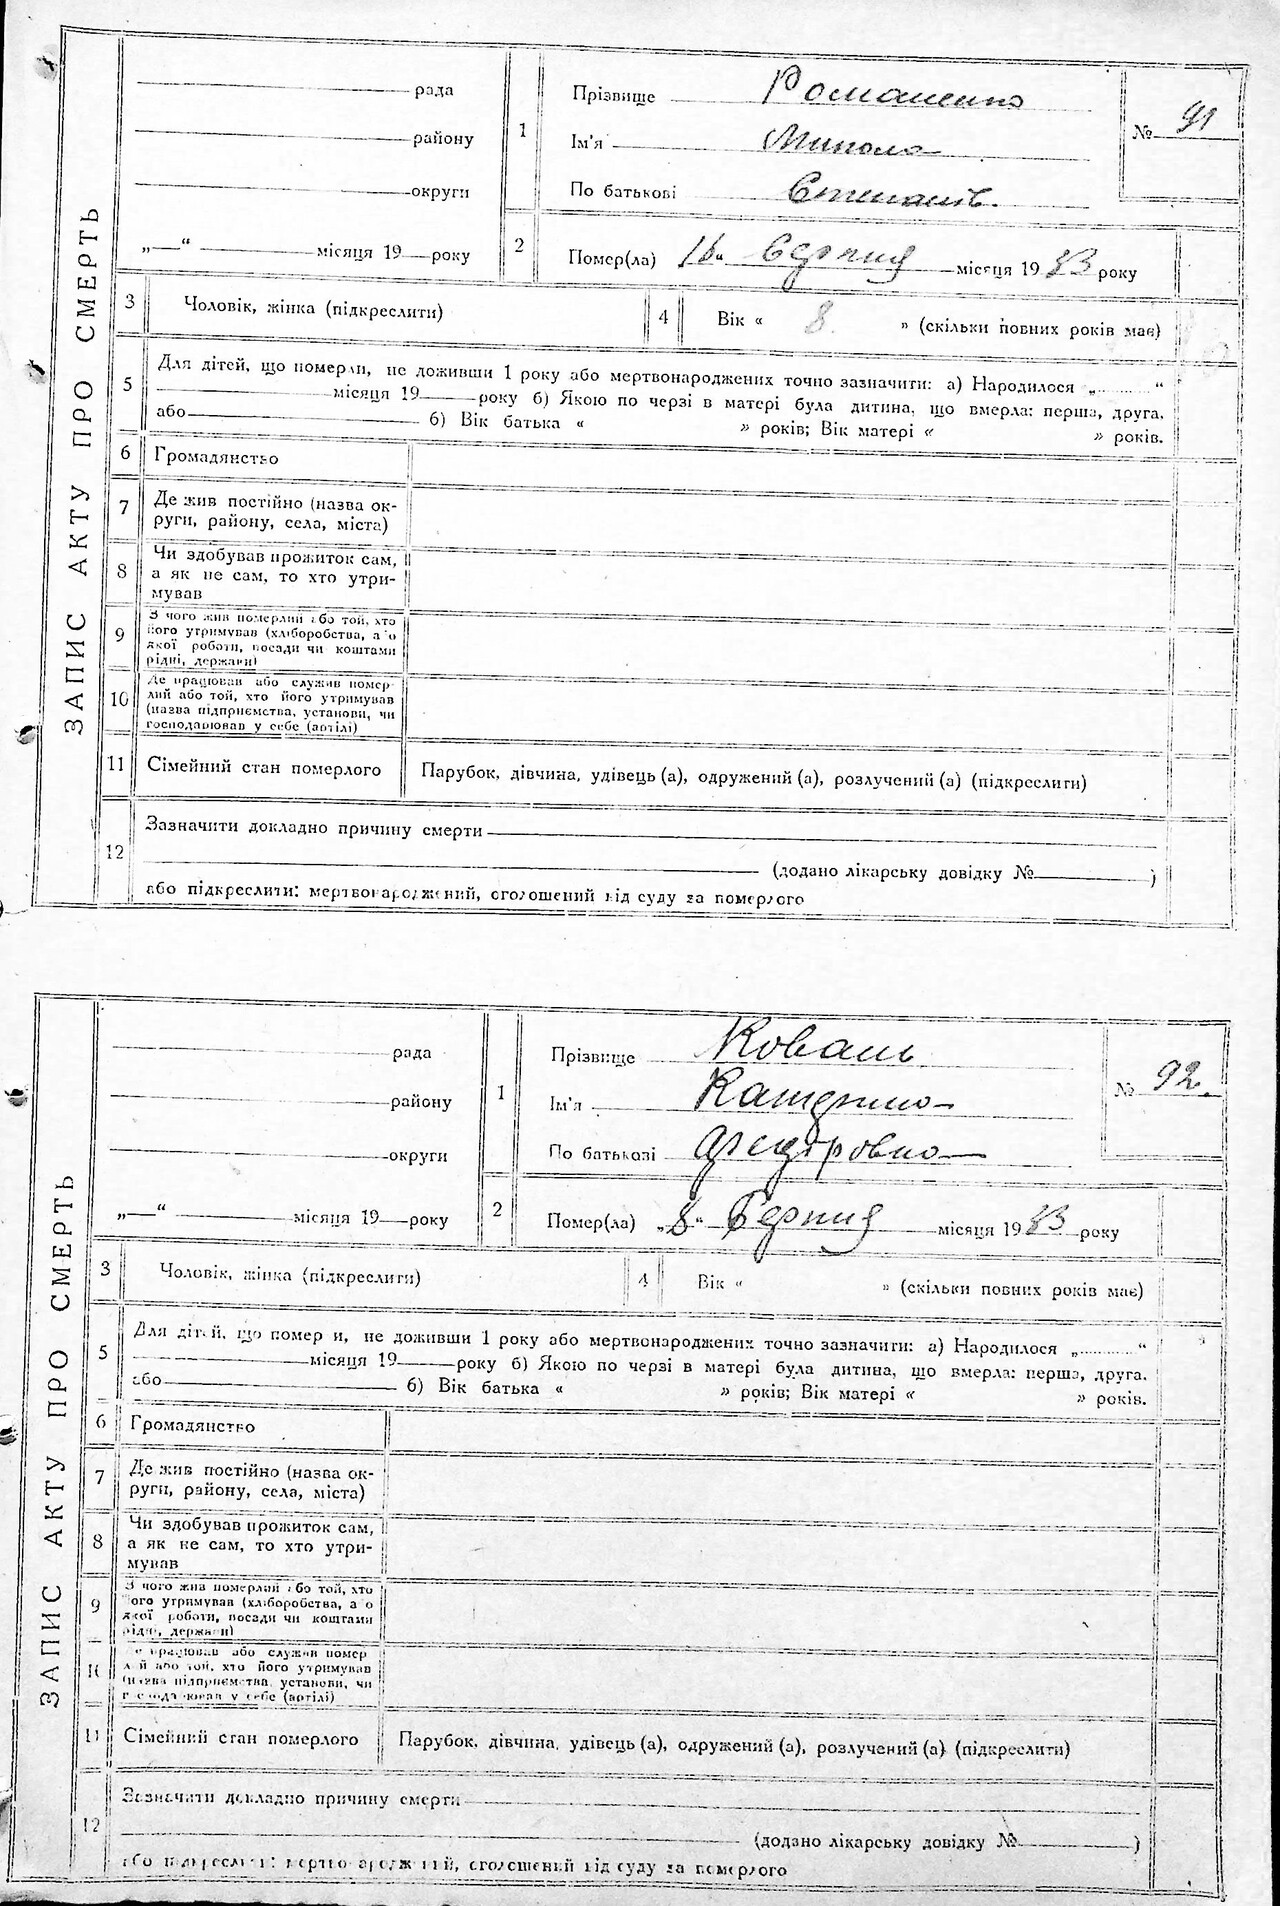 ЗАПИС АКТУ ПРО СМЕРТЬ
рада
району
округи
„—“ місяця 19 — року
1
Прізвище Романенко
Ім'я Микола
По батькові Степанів.
№ 91
2
Помер(ла) серпня місяця 1933 року
3
Чоловік, жінка (підкреслити)
4
Вік « 8 » (скільки повних років має)
5
Для дітей, що померли, не доживши 1 року або мертвонароджених точно зазначити: а) Народилося „..........“
місяця 19 року б) Якою по черзі в матері була дитина, що вмерла: перша, друга,
або б) Вік батька « » років; Вік матері « » років.
6
Громадянство
7
Де жив постійно (назва ок-
руги, району, села, міста)
8
Чи здобував прожиток сам,
а як не сам, то хто утри-
мував
9
З чого жив померлий або той, хто
його утримував (хліборобства, а о
якої роботи, посади чи коштами
рідні, держави)
10
Де працював або служив помер-
лий або той, хто його утримував
(назва підприємства, установи, чи
господарював у себе (артілі)
11
Сімейний стан померлого
Парубок, дівчина, удівець (а), одружений (а), розлучений (а) (підкреслити)
12
Зазначити докладно причину смерти
(додано лікарську довідку № )
або підкреслити: мертвонароджений, оголошений від суду за померлого
ЗАПИС АКТУ ПРО СМЕРТЬ
рада
району
округи
„—“ місяця 19 — року
1
Прізвище Коваль
Ім'я Катерина
По батькові Федоровна
№ 92.
2
Помер(ла) „8“ Серпня місяця 1933 року
3
Чоловік, жінка (підкреслити)
4
Вік « » (скільки повних років має)
5
Для дітей, що померли, не доживши 1 року або мертвонароджених точно зазначити: а) Народилося „..........“
місяця 19 року б) Якою по черзі в матері була дитина, що вмерла: перша, друга,
або б) Вік батька « » років; Вік матері « » років.
6
Громадянство
7
Де жив постійно (назва ок-
руги, району, села, міста)
8
Чи здобував прожиток сам,
а як не сам, то хто утри-
мував
9
З чого жив померлий або той, хто
його утримував (хліборобства, а о
якої роботи, посади чи коштами
рідні, держави)
10
Де працював або служив помер
лий або той, хто його утримував
(назва підприємства, установи, чи
господарював у себе (артілі)
11
Сімейний стан померлого
Парубок, дівчина, удівець (а), одружений (а), розлучений (а) (підкреслити)
12
Зазначити докладно причину смерти
(додано лікарську довідку № )
або підкреслити: мертвонароджений, оголошений від суду за померлого